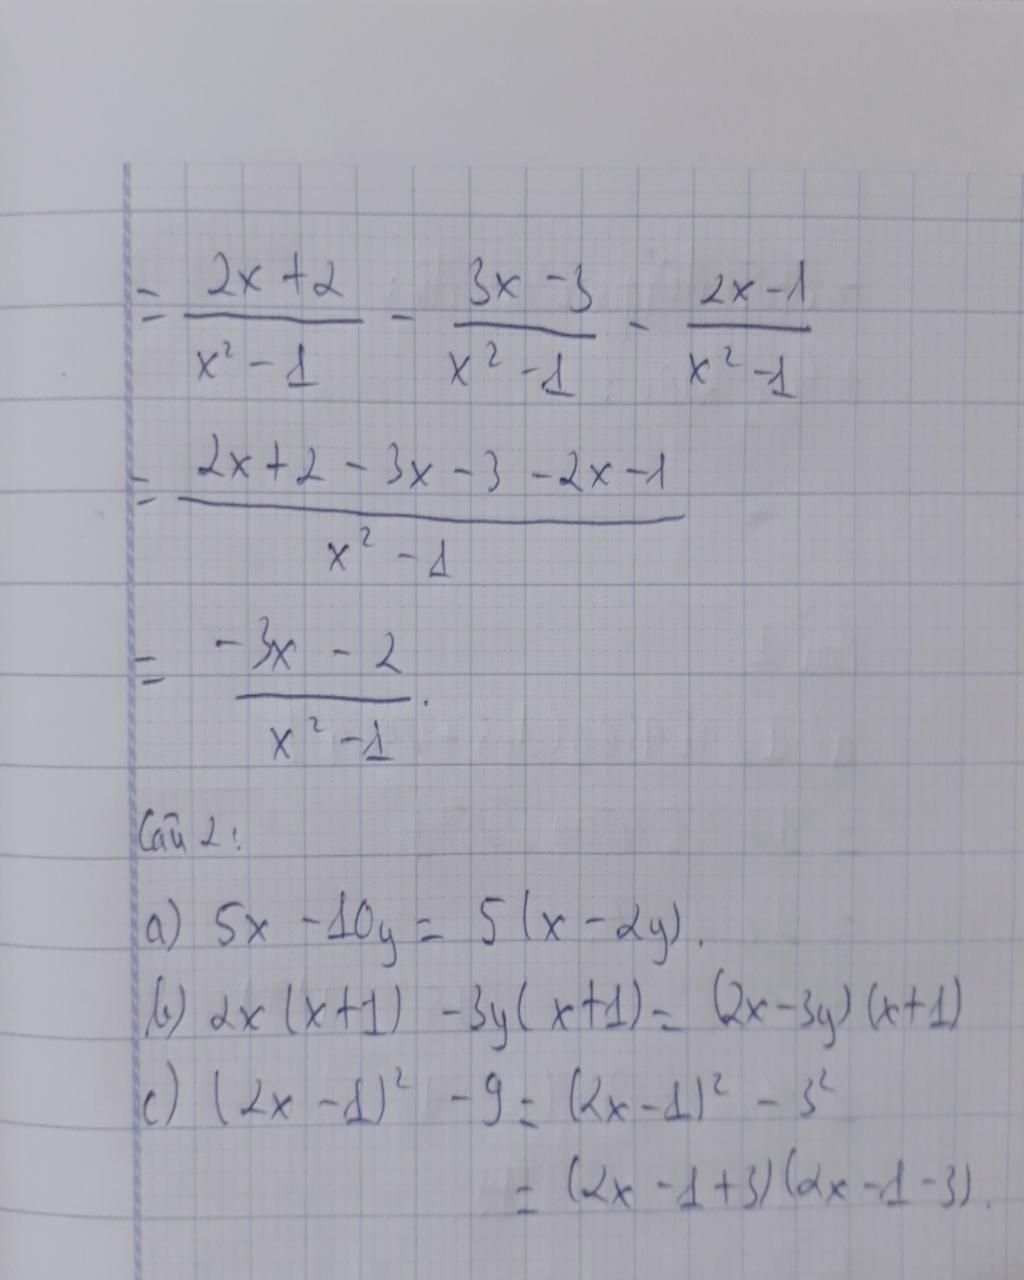 = \frac{2x+2}{x²-1} - \frac{3x-3}{x²-1} - \frac{2x-1}{x²-1}
= \frac{2x+2-3x-3-2x-1}{x²-1}
= \frac{-3x-2}{x²-1}.
Câu 2:
a) 5x - 10y = 5(x - 2y).
b) 2x(x+1) - 3y(x+1) = (2x-3y)(x+1)
c) (2x-1)² - 9 = (2x-1)² - 3²
= (2x-1+3)(2x-1-3).